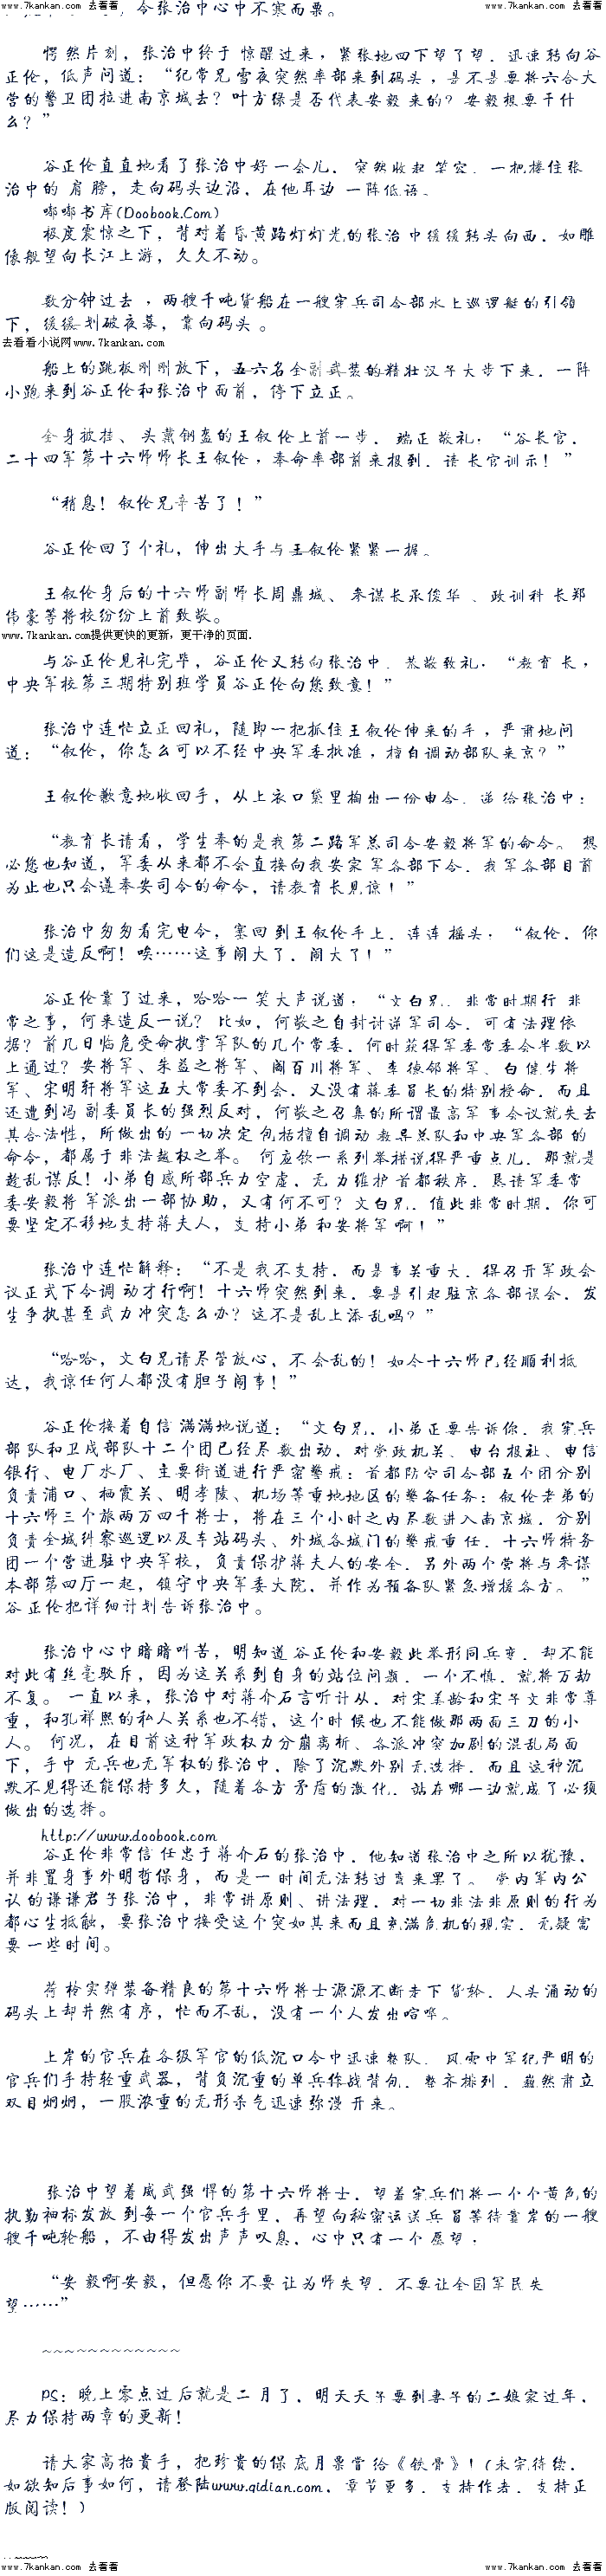 www.7kankan.com 去看看
www.7kankan.com 去看看
令张治中心中不寒而栗。
愕然片刻，张治中终于惊醒过来，紧张地四下望了望，迅速转向谷
正伦，低声问道：“纪常兄雪夜突然率部来到码头，是不是要将六合大
营的警卫团拉进南京城去？叶方绿是否代表安毅来的？安毅想要干什
么？”
谷正伦直直地看了张治中好一会儿，突然收起笑容，一把搂住张
治中的肩膀，走向码头边沿，在他耳边一阵低语。
嘟嘟书库(Doobook.Com)
极度震惊之下，背对着昏黄路灯灯光的张治中缓缓转头向西，如雕
像般望向长江上游，久久不动。
数分钟过去，两艘千吨货船在一艘宪兵司令部水上巡逻艇的引领
下，缓缓划破夜幕，靠向码头。
去看看小说网www.7kankan.com
船上的跳板刚刚放下，五六名全副武装的精壮汉子大步下来，一阵
小跑来到谷正伦和张治中面前，停下立正。
全身披挂、头戴钢盔的王叙伦上前一步，端正敬礼：“谷长官，
二十四军第十六师师长王叙伦，奉命率部前来报到，请长官训示！”
“稍息！叙伦兄辛苦了！”
谷正伦回了个礼，伸出大手与王叙伦紧紧一握。
王叙伦身后的十六师副师长周鼎城、参谋长承俊华、政训科长郑
伟豪等将校纷纷上前致敬。
www.7kankan.com提供更快的更新，更干净的页面.
与谷正伦见礼完毕，谷正伦又转向张治中，恭敬致礼：“教育长，
中央军校第三期特别班学员谷正伦向您致意！”
张治中连忙立正回礼，随即一把抓住王叙伦伸来的手，严肃地问
道：“叙伦，你怎么可以不经中央军委批准，擅自调动部队来京？”
王叙伦歉意地收回手，从上衣口袋里掏出一份电令，递给张治中：
“教育长请看，学生奉的是我第二路军总司令安毅将军的命令。想
必您也知道，军委从来都不会直接向我安家军各部下令，我军各部目前
为止也只会遵奉安司令的命令，请教育长见谅！”
张治中匆匆看完电令，塞回到王叙伦手上，连连摇头：“叙伦，你
们这是造反啊！唉……这事闹大了，闹大了！”
谷正伦靠了过来，哈哈一笑大声说道：“文白兄，非常时期行非
常之事，何来造反一说？比如，何敬之自封讨逆军司令，可有法理依
据？前几日临危受命执掌军队的几个常委，何时获得军委常委会半数以
上通过？安将军、朱益之将军、阎百川将军、李德邻将军、白健生将
军、宋明轩将军这五大常委不到会，又没有蒋委员长的特别授命，而且
还遭到冯副委员长的强烈反对，何敬之召集的所谓最高军事会议就失去
其合法性，所做出的一切决定包括擅自调动教导总队和中央军各部的
命令，都属于非法越权之举。何应钦一系列举措说得严重点儿，那就是
趁乱谋反！小弟自感所部兵力空虚，无力维护首都秩序，恳请军委常
委安毅将军派出一部协助，又有何不可？文白兄，值此非常时期，你可
要坚定不移地支持蒋夫人，支持小弟和安将军啊！”
张治中连忙解释：“不是我不支持，而是事关重大，得召开军政会
议正式下令调动才行啊！十六师突然到来，要是引起驻京各部误会，发
生争执甚至武力冲突怎么办？这不是乱上添乱吗？”
“哈哈，文白兄请尽管放心，不会乱的！如今十六师已经顺利抵
达，我谅任何人都没有胆子闹事！”
谷正伦接着自信满满地说道：“文白兄，小弟正要告诉你，我宪兵
部队和卫戍部队十二个团已经尽数出动，对党政机关、电台报社、电信
银行、电厂水厂、主要街道进行严密警戒；首都防空司令部五个团分别
负责浦口、栖霞关、明孝陵、机场等重地地区的警备任务；叙伦老弟的
十六师三个旅两万四千将士，将在三个小时之内尽数进入南京城，分别
负责全城纠察巡逻以及车站码头、外城各城门的警戒重任，十六师特务
团一个营进驻中央军校，负责保护蒋夫人的安全，另外两个营将与参谋
本部第四厅一起，镇守中央军委大院，并作为预备队紧急增援各方。”
谷正伦把详细计划告诉张治中。
张治中心中暗暗叫苦，明知道谷正伦和安毅此举形同兵变，却不能
对此有丝毫驳斥，因为这关系到自身的站位问题，一个不慎，就将万劫
不复。一直以来，张治中对蒋介石言听计从，对宋美龄和宋子文非常尊
重，和孔祥熙的私人关系也不错，这个时候也不能做那两面三刀的小
人。何况，在目前这种军政权力分崩离析、各派冲突加剧的混乱局面
下，手中无兵也无军权的张治中，除了沉默外别无选择，而且这种沉
默不见得还能保持多久，随着各方矛盾的激化，站在哪一边就成了必须
做出的选择。
http://www.doobook.com
谷正伦非常信任忠于蒋介石的张治中，他知道张治中之所以犹豫，
并非置身事外明哲保身，而是一时间无法转过弯来罢了。党内军内公
认的谦谦君子张治中，非常讲原则、讲法理，对一切非法非原则的行为
都心生抵触，要张治中接受这个突如其来而且充满危机的现实，无疑需
要一些时间。
荷枪实弹装备精良的第十六师将士源源不断走下货轮，人头涌动的
码头上却井然有序，忙而不乱，没有一个人发出喧哗。
上岸的官兵在各级军官的低沉口令中迅速整队，风雪中军纪严明的
官兵们手持轻重武器，背负沉重的单兵作战背包，整齐排列，巍然肃立
双目炯炯，一股浓重的无形杀气迅速弥漫开来。
张治中望着威武强悍的第十六师将士，望着宪兵们将一个个黄色的
执勤袖标发放到每一个官兵手里，再望向秘密运送兵员等待靠岸的一艘
艘千吨轮船，不由得发出声声叹息，心中只有一个愿望：
“安毅啊安毅，但愿你不要让为师失望，不要让全国军民失
望……”
~~~~~~~~~~~~
PS：晚上零点过后就是二月了，明天天子要到妻子的二娘家过年，
尽力保持两章的更新！
请大家高抬贵手，把珍贵的保底月票赏给《铁骨》！(未完待续，
如欲知后事如何，请登陆www.qidian.com，章节更多，支持作者，支持正
版阅读！)
www.7kankan.com 去看看
www.7kankan.com 去看看